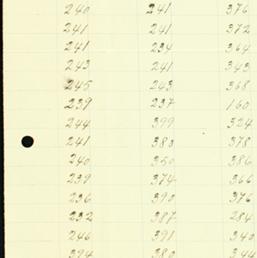 240 241 376
241 241 372
241 234 364
243 241 343
245 243 368
239 237 160
244 399 324
241 380 378
240 350 386
239 374 366
236 390 376
232 387 284
246 391 340
394 380 344